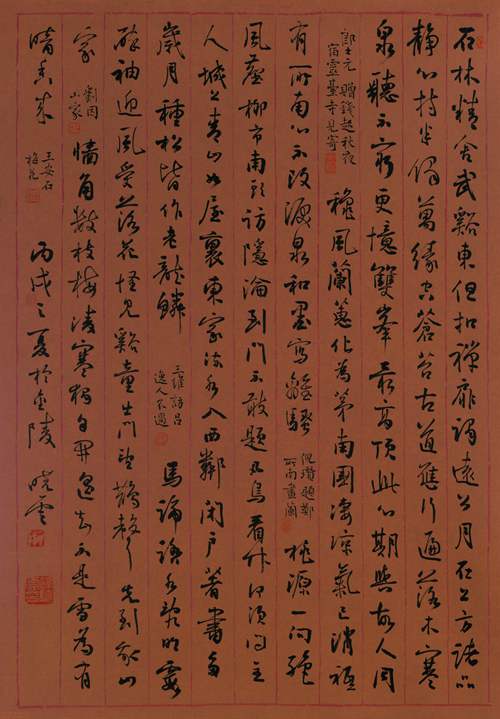 石林精舍武谿東夜扣禪扉謁遠公月在上方諸品
靜心持半偈萬緣空蒼苔古道應行遍落木寒
泉聽不窮更憶雙峯最高頂此心期與故人同
郎士元 贈錢起秋夜
宿靈臺寺見寄
穐風蘭蕙化為茅南國凄涼氣已消秪
有所南心不改淚泉和墨寫離騷
倪瓚題鄭
所南畫蘭
桃源一向絕
風塵柳市南頭訪隱淪到門不敢題凡鳥看竹何須問主
人城上青山如屋裏東家流水入西鄰閉戶著書多
歲月種松皆作老龍鱗
王維訪呂
逸人不遇
馬蹄踏水亂明霞
醉袖迎風受落花怪見谿童出門望鵲聲先到我山
家
劉因
山家
牆角數枝梅凌寒獨自開遙知不是雪為有
暗香來
王安石
梅花
丙戌之夏於金陵 曉雲